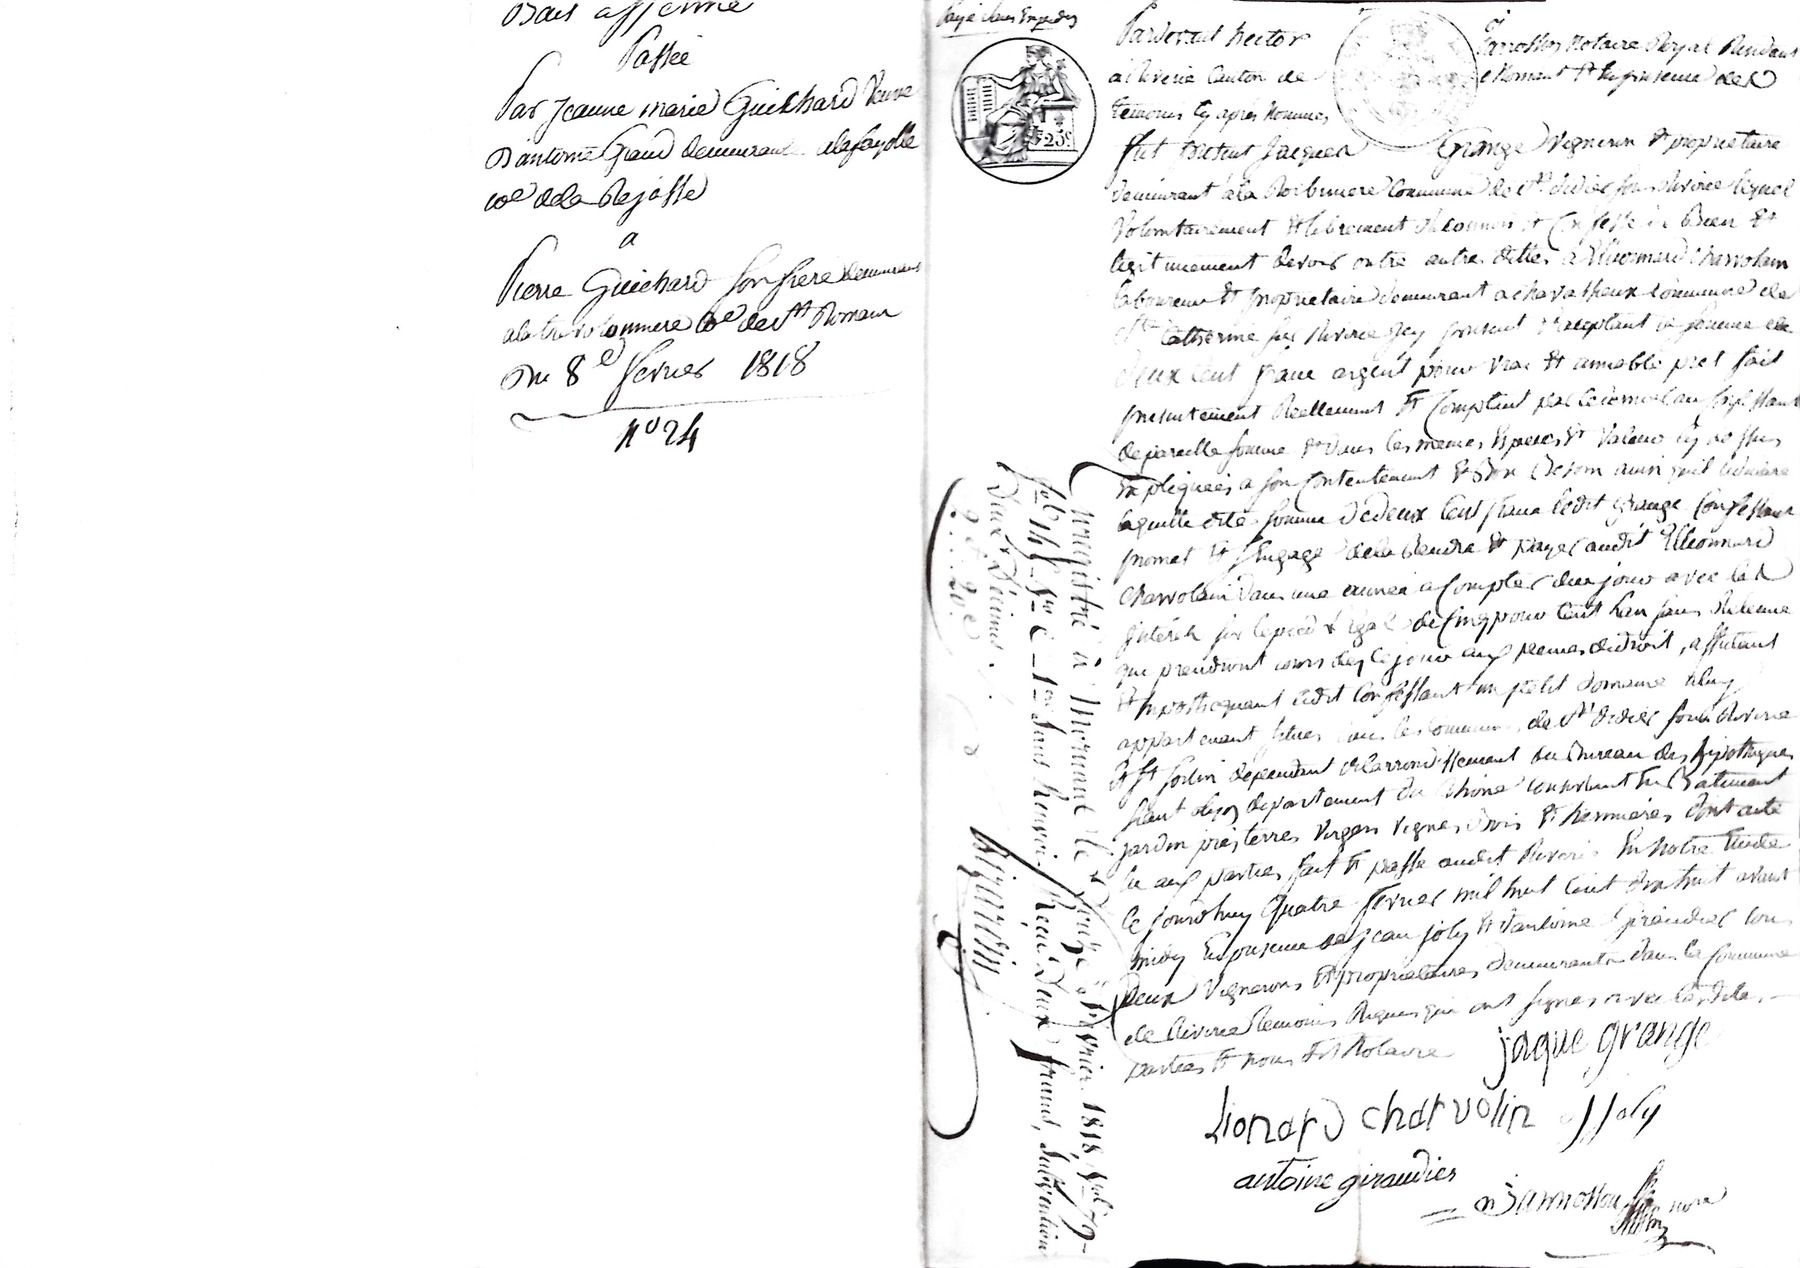 Bail afferme
Passée
Par Jeanne marie Guichard Veuve
D'antoine Grand demeurant alafayolle
coe dela Rajasse
a
Pierre Guichard son frere demeurant
coe de st Romain
Du 8e fevrier 1818
No 24
Payé sans Expedon
25c
Pardevant hector Janosson Notaire Royal Residant
à Riverie Canton de Mornant Et En presence des
temoins Cy après Nommés
fut present Jacques Grange Vigneron Et proprietaire
demeurant ala commune de st didier sous Riverie lequel
Volontairement Et librement Reconnu Et Confesse Bien Et
legitimement devoir outre autre dettes à Leonnard Charvolain
laboureur Et proprietaire demeurant a chavasseux commune de
ste Catherine sur Riverie Icy present Et acceptant la somme de
deux Cent franc argent pour vrai Et amiable pret fait
presentement Reellement Et Comptant par ce dernier au confessant
de pareille somme Et dans les memes Especes Et Valeur Cy dessus
Expliquées a son Contentement Et Bon Besoin ainsi quil declare
laquelle dite somme de deux Cent franc ledit Grange Confessant
promet Et S'engage dela Rendre Et payer audit Leonnard
Charvolain dans une année a Compter du jour avec les
Interets sur le pied legal de Cinq pour Cent Lan sans Retenue
qui prendront cours des ce jour aux peines dudroit, affectant
Et hypothequant ledit Confessant un petit domaine a luy
appartenant situés dans les communes de st didier sous Riverie
Et st Sorlin dependant de larrondissement du Bureau des hypotheques
seant a Lyon departement du Rhone consistant En Batiment
jardin près terres Verger Vignes Bois Et hermieres Dont acte
lu aux parties fait Et passe audit Riverie En notre Etude
Ce Jourdhuy Quatre fevrier mil huit Cent dix huit avant
midy En presence de Jean joly Et d'antoine Giraudier tous
deux Vignerons Et proprietaires demeurants dans la Commune
de Riverie temoins Requis qui ont signes avec lesdites
parties Et nous dit Notaire
jaque grange
Lionard charvolin J Joly
antoine giraudier
Janosson
Enregistré à Mornant le Douze février 1818, vol. 7
fol. 14 Sans Renvoi. Reçu Deux francs, Subvention
Deux Décimes.
2f. 20c.